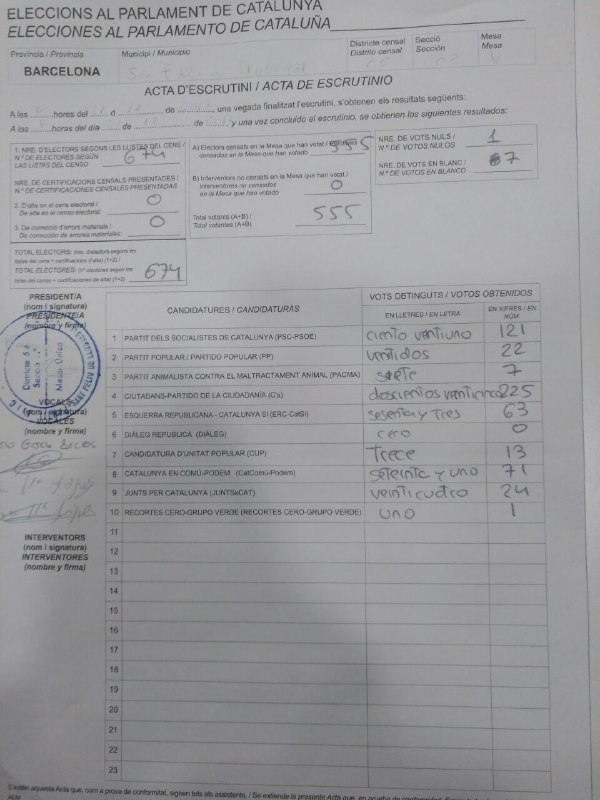 ELECCIONS AL PARLAMENT DE CATALUNYA
ELECCIONES AL PARLAMENTO DE CATALUÑA
Província / Provincia
Municipi / Municipio
Districte censal
Distrito censal
Secció
Sección
Mesa
Mesa
BARCELONA
ACTA D'ESCRUTINI / ACTA DE ESCRUTINIO
A les hores del d de , una vegada finalitzat l'escrutini, s'obtenen els resultats següents:
A las horas del día de y una vez concluido el escrutinio, se obtienen los siguientes resultados:
1. NRE. D'ELECTORS SEGONS LES LLISTES DEL CENS /
N.º DE ELECTORES SEGÚN
LAS LISTAS DEL CENSO
674
NRE. DE CERTIFICACIONS CENSALS PRESENTADES /
N.º DE CERTIFICACIONES CENSALES PRESENTADAS
2. D'alta en el cens electoral /
De alta en el censo electoral:
0
3. De correcció d'errors materials /
De corrección de errores materiales:
0
TOTAL ELECTORS: (nre. d'electors segons les
llistes del cens + certificacions d'alta) (1+2) /
TOTAL ELECTORES: (nº electores según las
listas del censo + certificaciones de alta) (1+2)
674
A) Electors censats en la Mesa que han votat / Electores
censados en la Mesa que han votado
555
B) Interventors no censats en la Mesa que han votat /
Interventores no censados
en la Mesa que han votado
0
Total votants (A+B) /
Total votantes (A+B)
555
NRE. DE VOTS NULS /
N.º DE VOTOS NULOS
1
NRE. DE VOTS EN BLANC /
N.º DE VOTOS EN BLANCO
7
PRESIDENT/A
(nom i signatura)
PRESIDENTE/A
(nombre y firma)
VOCALS
(nom i signatura)
VOCALES
(nombre y firma)
INTERVENTORS
(nom i signatura)
INTERVENTORES
(nombre y firma)
CANDIDATURES / CANDIDATURAS
VOTS OBTINGUTS / VOTOS OBTENIDOS
EN LLETRES / EN LETRA
EN XIFRES / EN NÚM
1 PARTIT DELS SOCIALISTES DE CATALUNYA (PSC-PSOE) ciento ventiuno 121
2 PARTIT POPULAR / PARTIDO POPULAR (PP) ventidos 22
3 PARTIT ANIMALISTA CONTRA EL MALTRACTAMENT ANIMAL (PACMA) siete 7
4 CIUTADANS-PARTIDO DE LA CIUDADANÍA (C's) doscientos venticinco 225
5 ESQUERRA REPUBLICANA - CATALUNYA SÍ (ERC-CatSí) sesenta y Tres 63
6 DIÀLEG REPUBLICÀ (DIÀLEG) cero 0
7 CANDIDATURA D'UNITAT POPULAR (CUP) Trece 13
8 CATALUNYA EN COMÚ-PODEM (CatComú-Podem) seteinta y uno 71
9 JUNTS PER CATALUNYA (JUNTSxCAT) veinticuatro 24
10 RECORTES CERO-GRUPO VERDE (RECORTES CERO-GRUPO VERDE) uno 1
11
12
13
14
15
16
17
18
19
20
21
22
23
S'estén aquesta Acta que, com a prova de conformitat, signen tots els assistents. / Se extiende la presente Acta que, en prueba de conformidad,